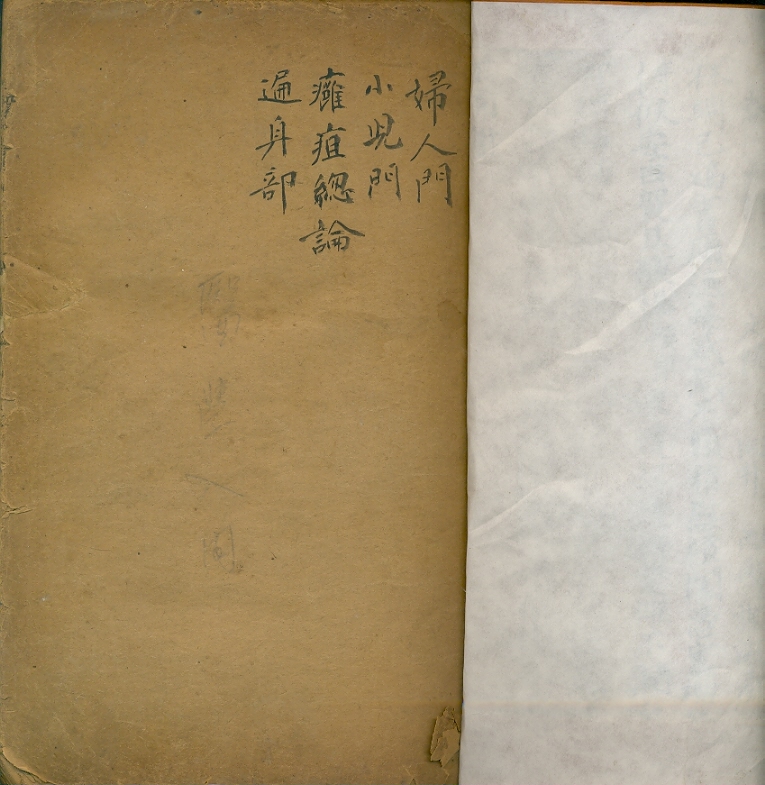 婦人門
小児門
癰疽緫論
遍身部